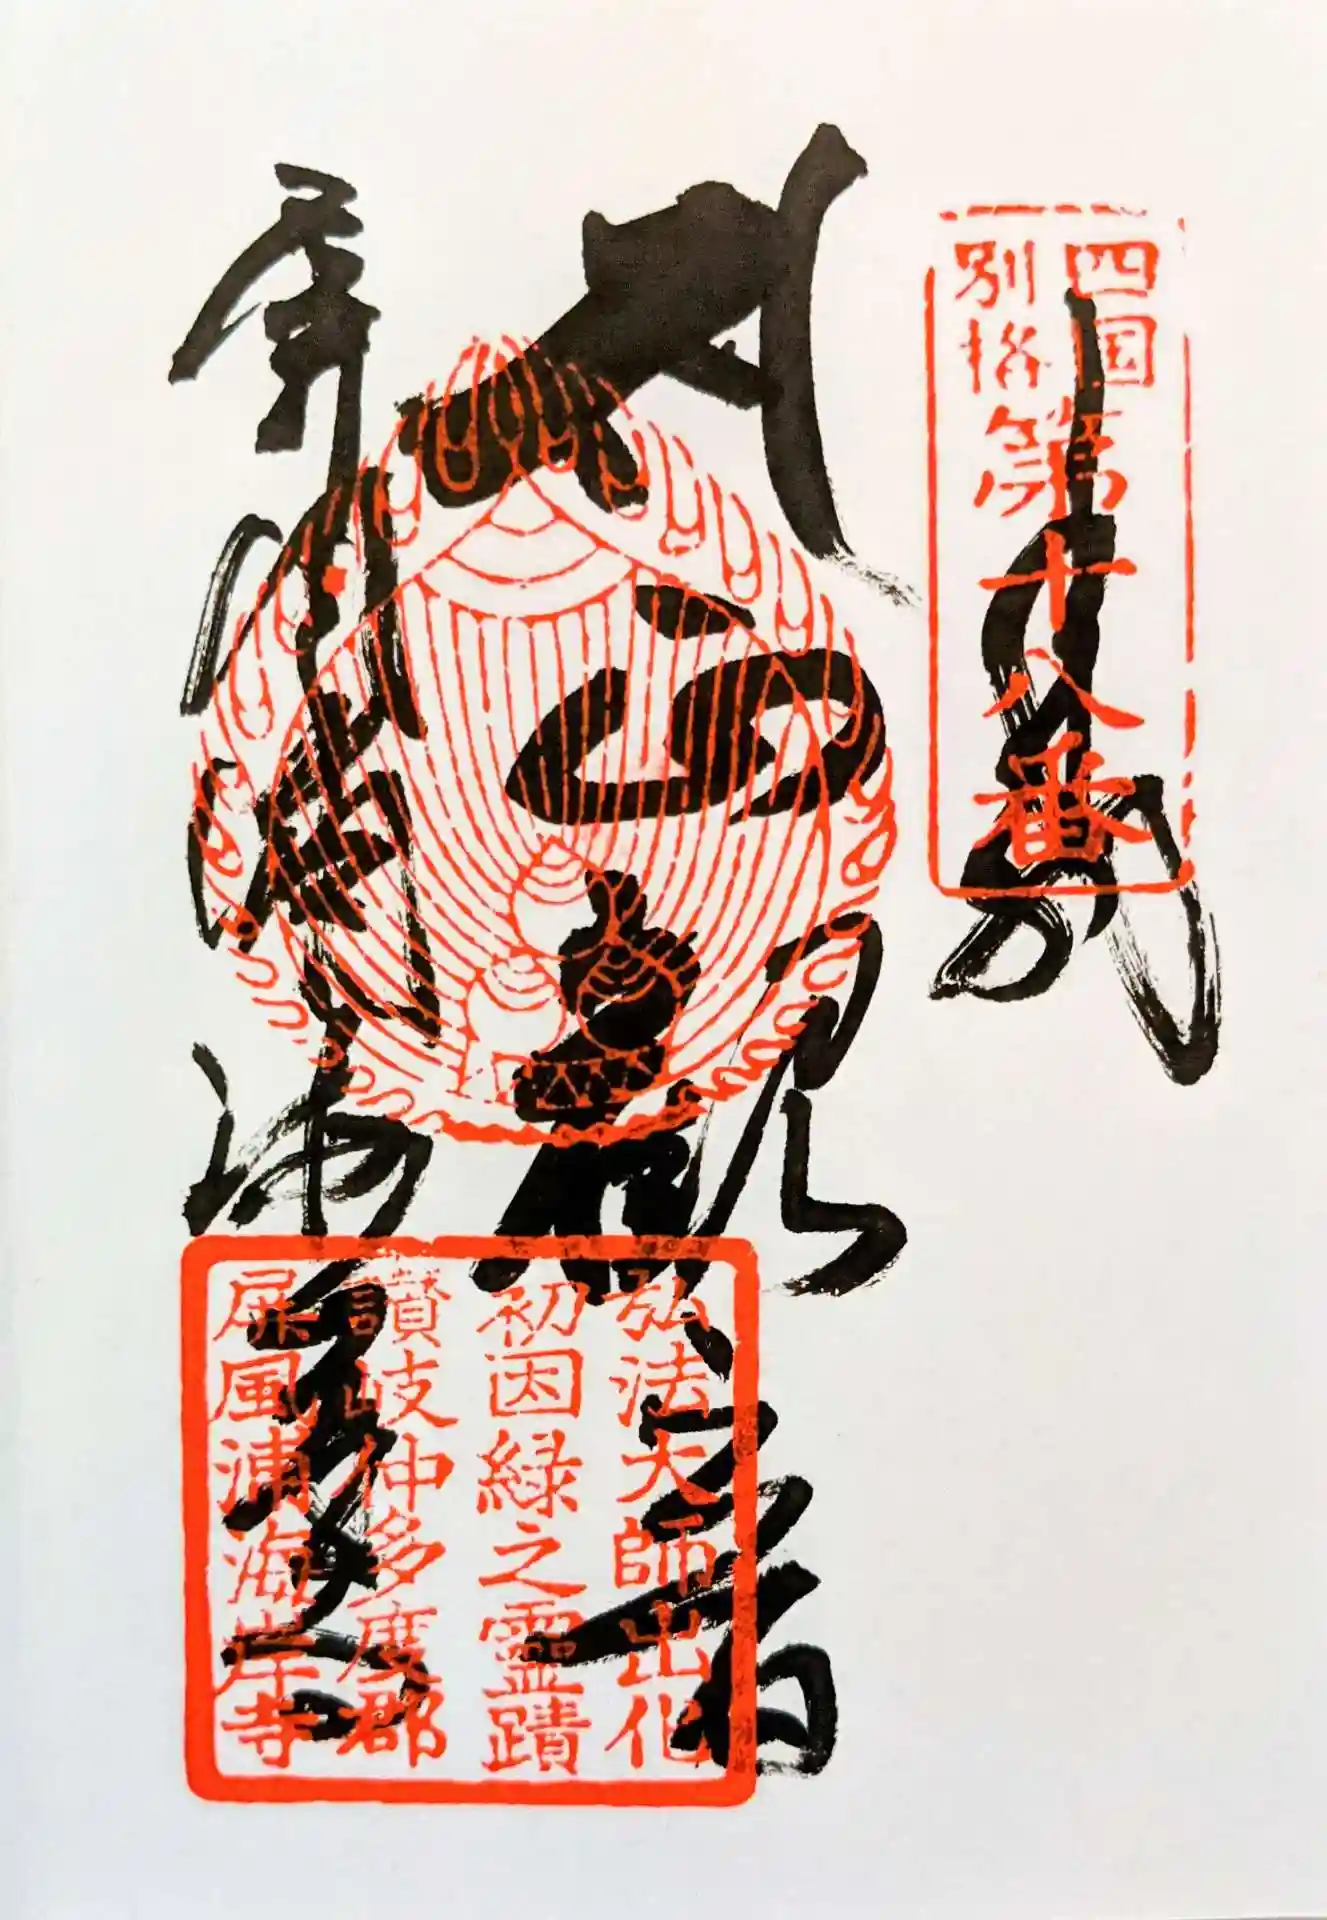 四国
別格
第十八番
奉拝
正観世音
屏風浦海岸寺
弘法大師出化
初因縁之霊蹟
讃岐仲多度郡
屏風浦海岸寺